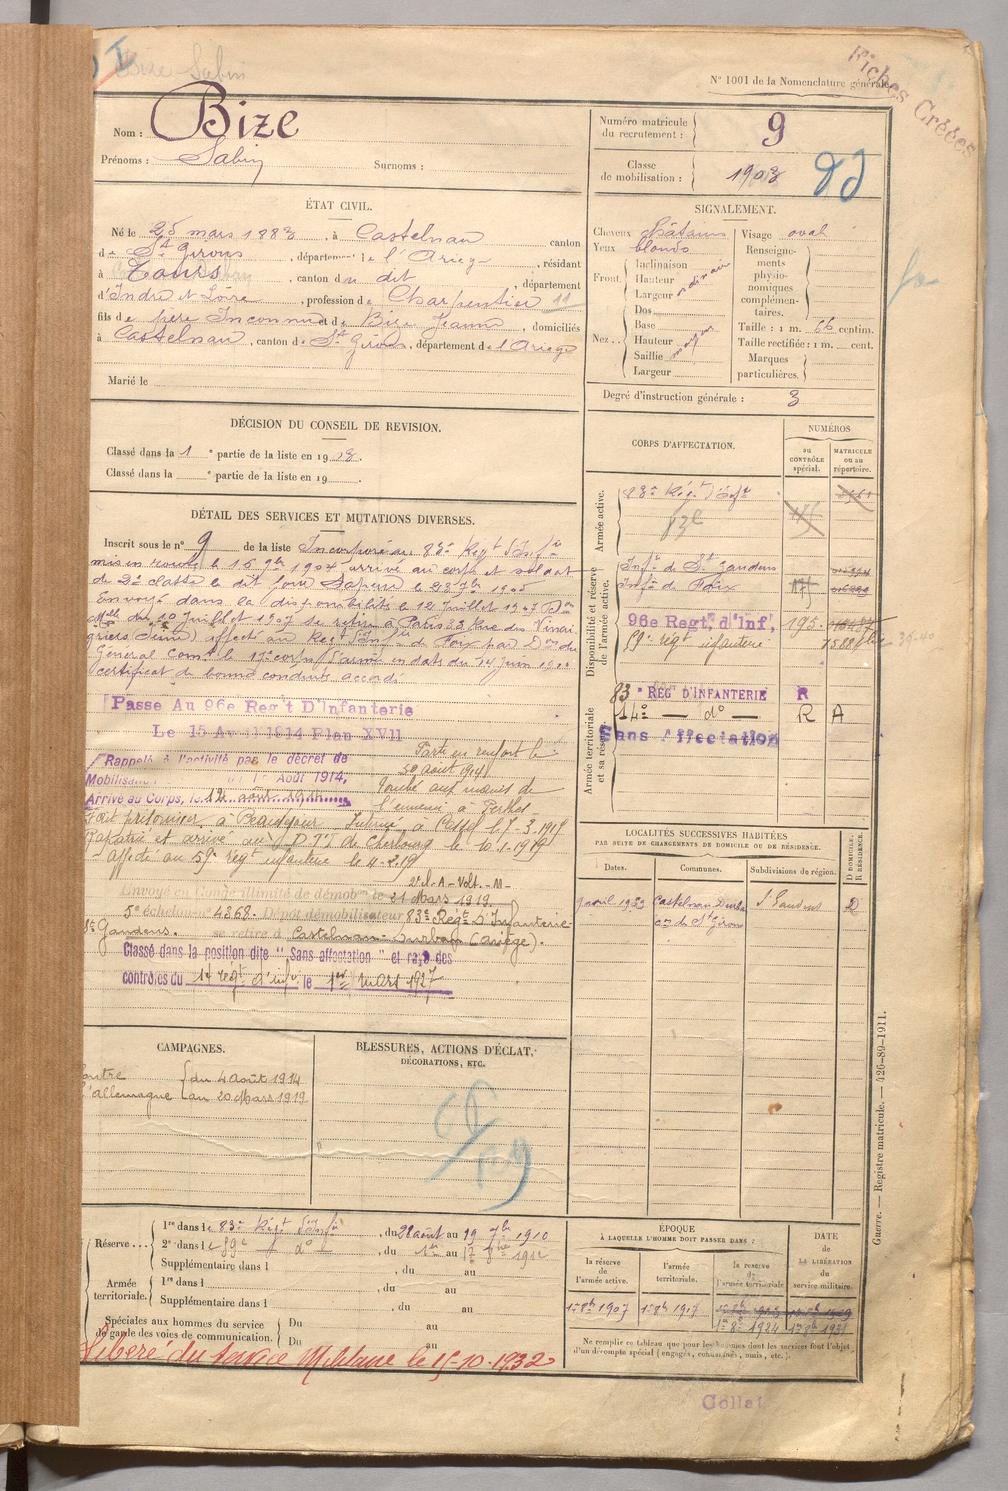 Bize Sabin
N° 1001 de la Nomenclature générale
Fiches Créées
Nom : Bize
Prénoms : Sabin Surnoms :
Numéro matricule du recrutement : 9
Classe de mobilisation : 1903
ÉTAT CIVIL.
Né le 25 mars 1883, à Castelnau canton
de St Girons, département de l'Ariege, résidant
à Tours, canton du dit, département
d'Indre et Loire, profession de Charpentier 11
fils de père Inconnu et de Bize Jeanne, domiciliés
à Castelnau, canton de St Girons, département de l'Ariege
Marié le
SIGNALEMENT.
Cheveux châtains
Yeux blonds
Front. Inclinaison
Hauteur ordinaire
Largeur
Nez.. Dos
Base
Hauteur moyen
Saillie
Largeur
Visage oval
Renseignements physionomiques complémentaires.
Taille : 1 m. 66 centim.
Taille rectifiée : 1 m. cent.
Marques particulières.
Degré d'instruction générale : 3
DÉCISION DU CONSEIL DE REVISION.
Classé dans la 1e partie de la liste en 19
Classé dans la e partie de la liste en 19 .
DÉTAIL DES SERVICES ET MUTATIONS DIVERSES.
Inscrit sous le n° 9 de la liste Incorporé au 83e Regt d'Infie
mis en route le 15 9bre 1904 arrivé au corps et soldat
de 2e classe le dit jour Sapeur le
Envoyé dans la disponibilité le 12 Juillet 1907
du Juillet 1907 se retire à Paris 23 Rue des Vinai
griers (Seine) affecté au Regt d'Infie de Foix par Don du
Général Comt le 17e corps d'armée en date du 24 Juin
certificat de bonne conduite accordé
Passe Au 96e Reg't D'Infanterie
Le 15 Avril 1914 Plan XVII
Rappelé à l'activité par le décret de
Mobilisation du 1er Août 1914,
Arrivé au Corps, le 12 août 1914
Parti en renfort le
30 aout 1914
Tombé aux mains de
l'ennemi à Perthes
Fait prisonnier à Beauséjour Interné à Cassel 17-3-1915
Rapatrié et arrivé au D T I de Cherbourg le 10-1-1919
affecté au 59e regt infanterie le 4-2-19
Envoyé en Congé illimité de démobon le 21 Mars 1919.
5e échelon n° 4368. Dépôt démobilisateur 83e Regt D'Infanterie
St Gaudens. se retire à Castelnau-Durban (Ariège).
Classé dans la position dite " Sans affectation " et rayé des
contrôles du 14 regt d'infie le 1er mars 1927
CORPS D'AFFECTATION.
NUMÉROS
au CONTRÔLE spécial.
MATRICULE ou au répertoire.
Armée active.
83e Régt d'Infie
Disponibilité et réserve de l'armée active.
Infie de St Gaudens
Infie de Foix
96e Regt, d'Inf, 195
59e regt infanterie
Armée territoriale et sa réserve.
83e REG D'INFANTERIE R
14e — do — R A
Sans Affectation
LOCALITÉS SUCCESSIVES HABITÉES
PAR SUITE DE CHANGEMENTS DE DOMICILE OU DE RÉSIDENCE.
Dates. Communes. Subdivisions de région. D DOMICILE. R RÉSIDENCE.
avril 1923 Castelnau Durban con de St Girons St Gaudens D
CAMPAGNES.
contre l'allemagne du 4 août 1914
au 20 Mars 1919
BLESSURES, ACTIONS D'ÉCLAT,
DÉCORATIONS, ETC.
Réserve... 1re dans le 83e Régt d'Infie, du 28 août au 19 7bre 1910
2e dans le 59e do, du 1er au 17
Supplémentaire dans l , du au
Armée territoriale. 1re dans l , du au
Supplémentaire dans l , du au
Spéciales aux hommes du service de garde des voies de communication. Du au
Du au
Libéré du service Militaire le 15-10-1932
ÉPOQUE
À LAQUELLE L'HOMME DOIT PASSER DANS :
la réserve de l'armée active. l'armée territoriale. la reserve de l'armée territoriale
DATE de LA LIBÉRATION du service militaire.
1er 8bre 1907 1er 8bre 1917
1er 8bre 1924 1er 8bre 1931
Ne remplir ce tableau que pour les hommes dont les services font l'objet
d'un décompte spécial (engagés, commissionnés, omis, etc.).
Guerre. — Registre matricule. — 426-89-1911.
Collat